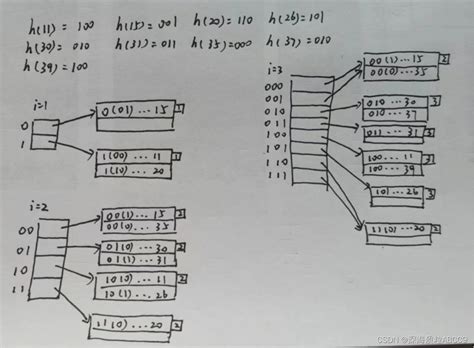 h(11) = 100 h(15) = 001 h(20) = 110 h(26) = 101
h(30) = 010 h(31) = 011 h(35) = 000 h(37) = 010
h(39) = 100
i=1
0
1
0(01)...15 1
1(00)...11 1
1(10)...20
i=2
00
01
10
11
00(1)...15 2
00(0)...35
01(0)...30 2
01(1)...31
10(0)...11 2
10(1)...26
11(0)...20 2
i=3
000
001
010
011
100
101
110
111
00(1)...15 2
00(0)...35
010...30 3
010...37
011...31 3
100...11 3
100...39
101...26 3
11(0)...20 2